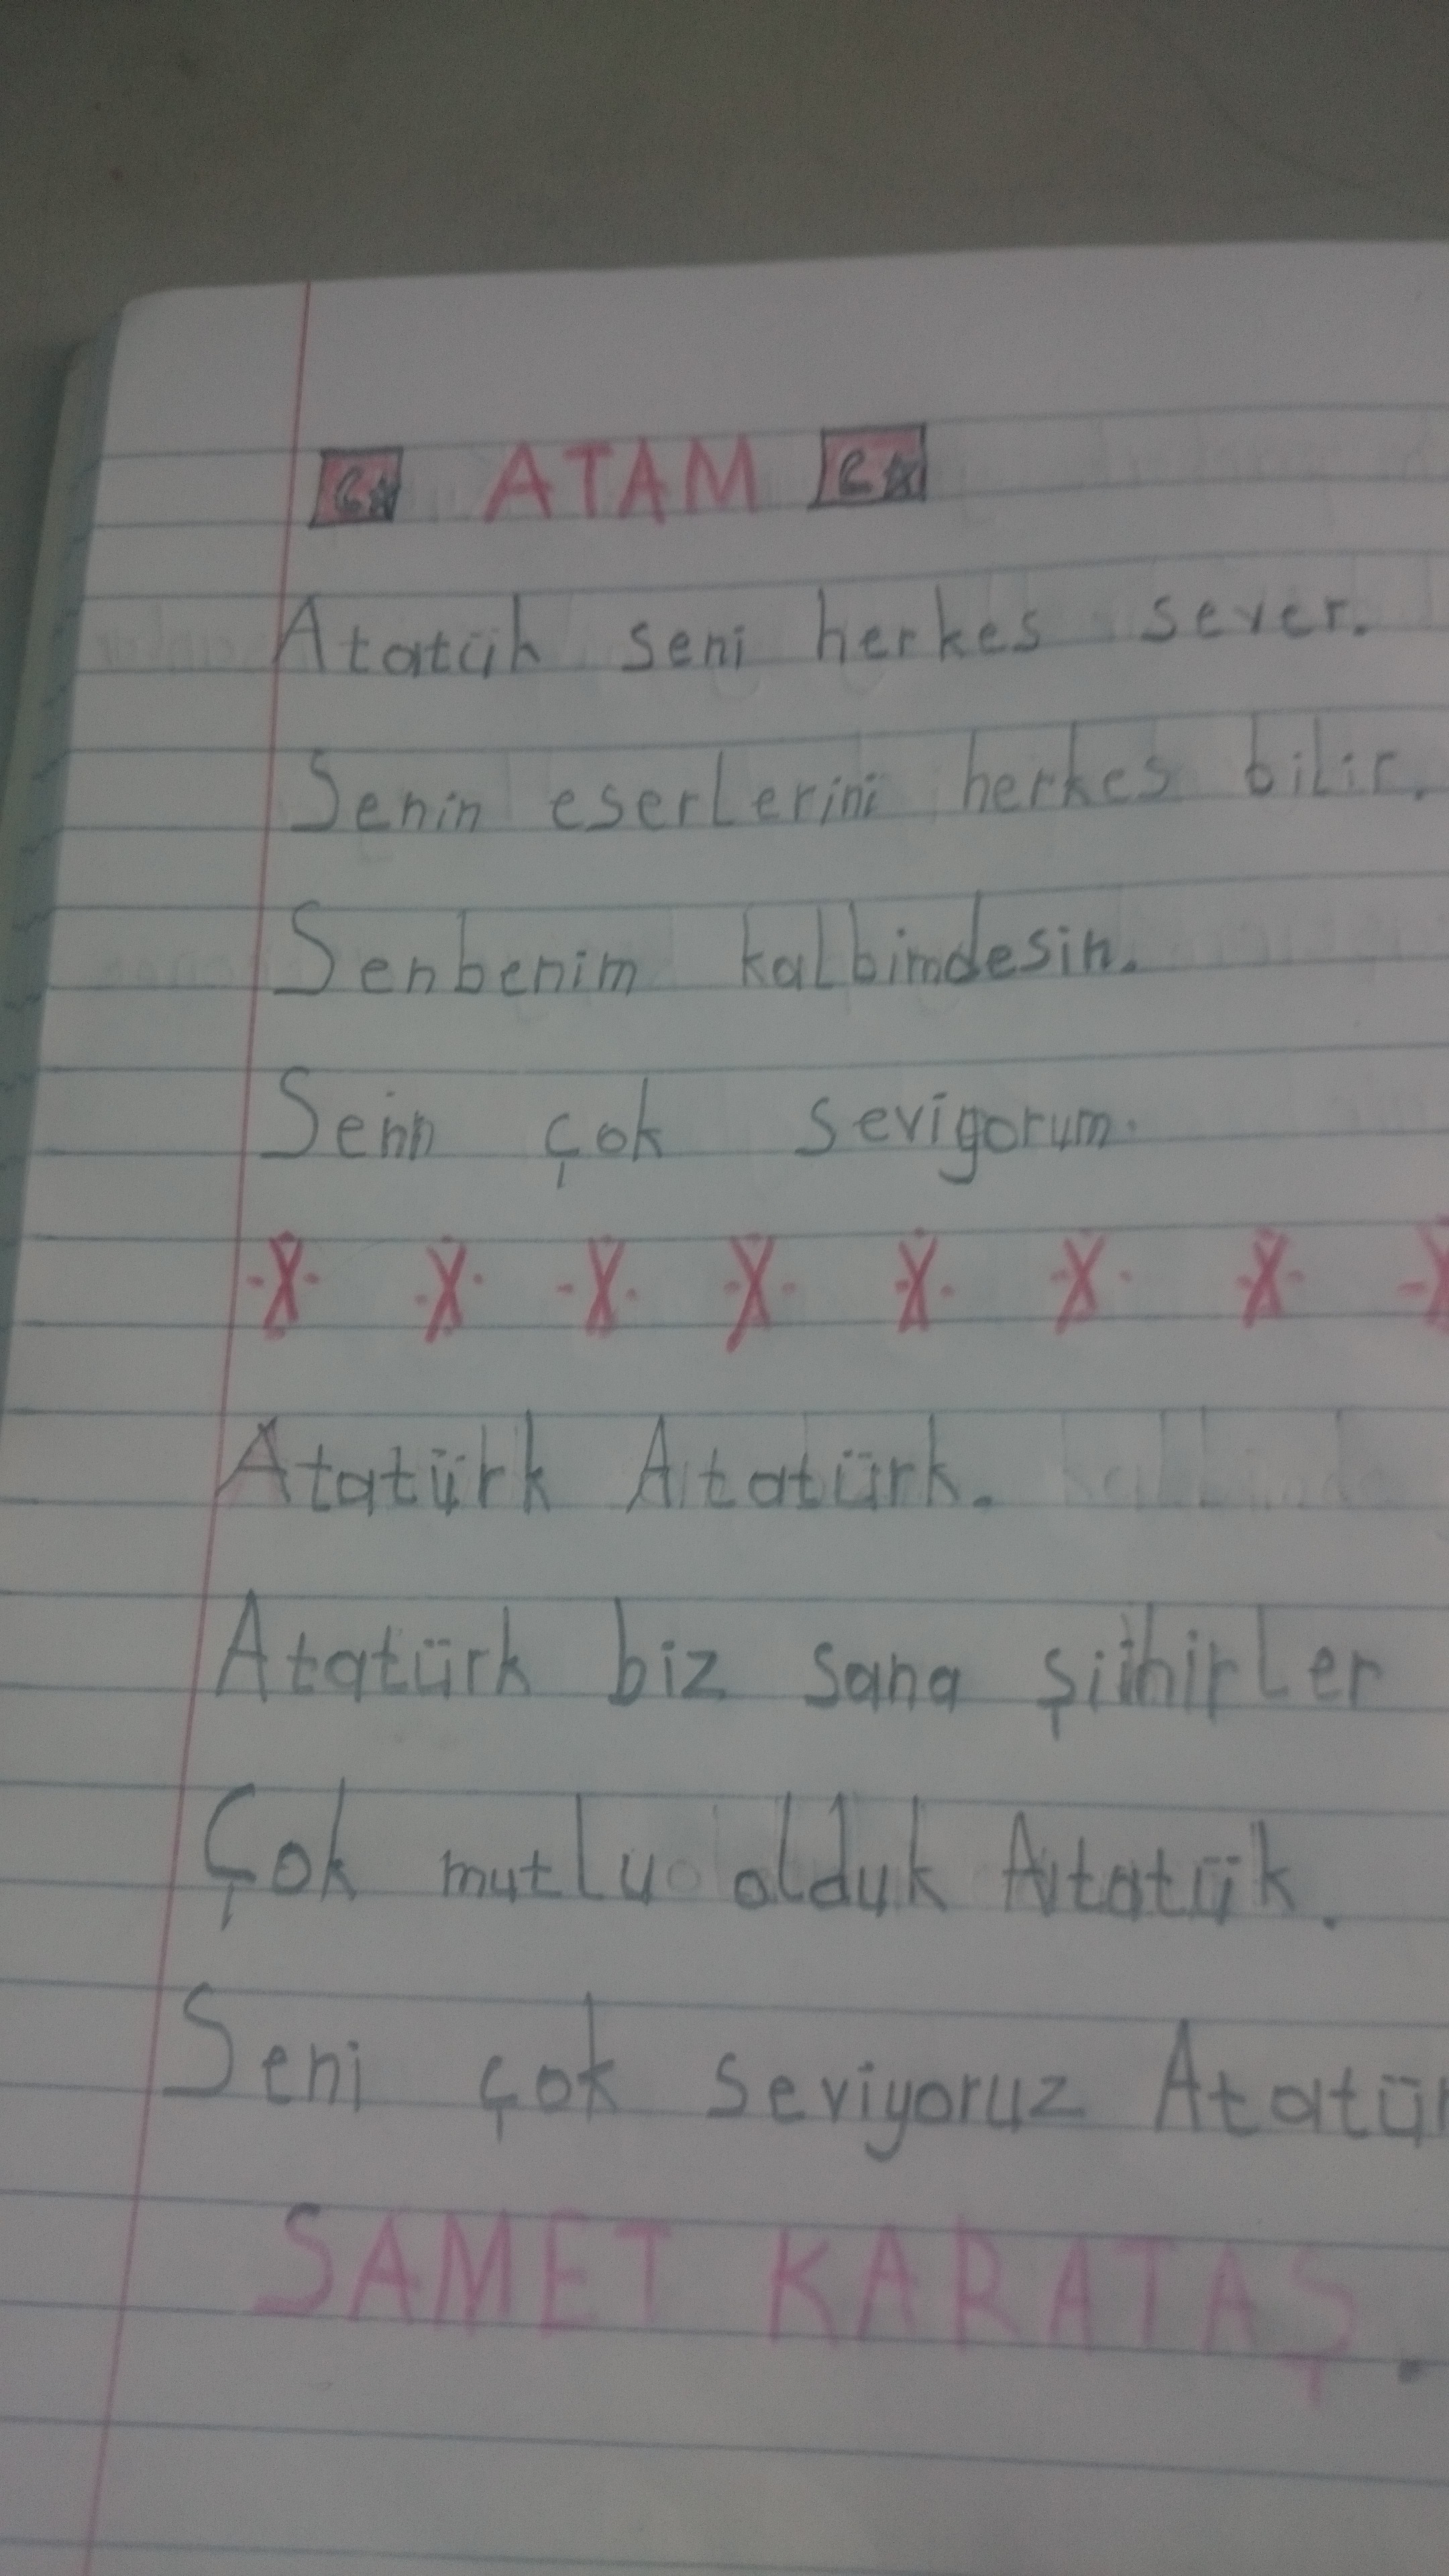 ATAM
Atatük seni herkes sever.
Senin eserlerini herkes bilir.
Senbenim kalbimdesin.
Seinn çok sevigorum.
Atatürk Atatürk.
Atatürk biz sana şiihirler
Çok mutlu olduk Atatük.
Seni çok seviyoruz Atatür
SAMET KARATAŞ.